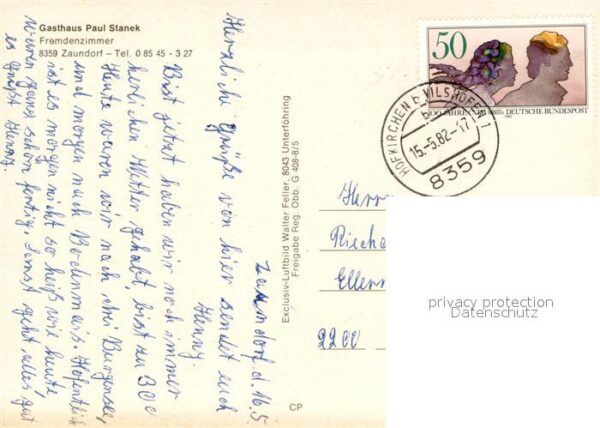 Gasthaus Paul Stanek
Fremdenzimmer
8359 Zaundorf – Tel. 0 85 45 - 3 27
Zaundorf. d. 16.5
Herzliche Grüße von hier sendet euch
Henny.
Bist jetzt haben wir noch immer
herlichen Wetter gehabt bist zu 30C
Heute waren wir nach drei Burgensee,
und morgen nach Bodenmais. Hofentlich
ist es morgen nicht so heiß wie heute,
waren ganz schön fertig. sonst geht alles gut
es grüßt Henny.
Exclusiv-Luftbild Walter Feller, 8043 Unterföhring
Freigabe Reg. Obb. G 408-8/5
CP
50
DEUTSCHE BUNDESPOST
HOFKIRCHEN b VILSHOFEN 1
b
15.-5.82-17
8359
Herrn
Ellern
2200
privacy protection
Datenschutz